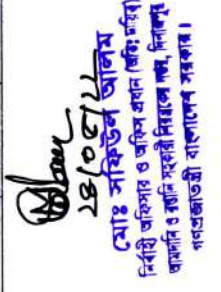 মোঃ সফিউল আলম
নির্বাহী অফিসার ও অফিস প্রধান (অতিঃ দায়িত্ব)
আমদানি ও রপ্তানি সহকারী নিয়ন্ত্রকের দপ্তর, দিনাজপুর
গণপ্রজাতন্ত্রী বাংলাদেশ সরকার।